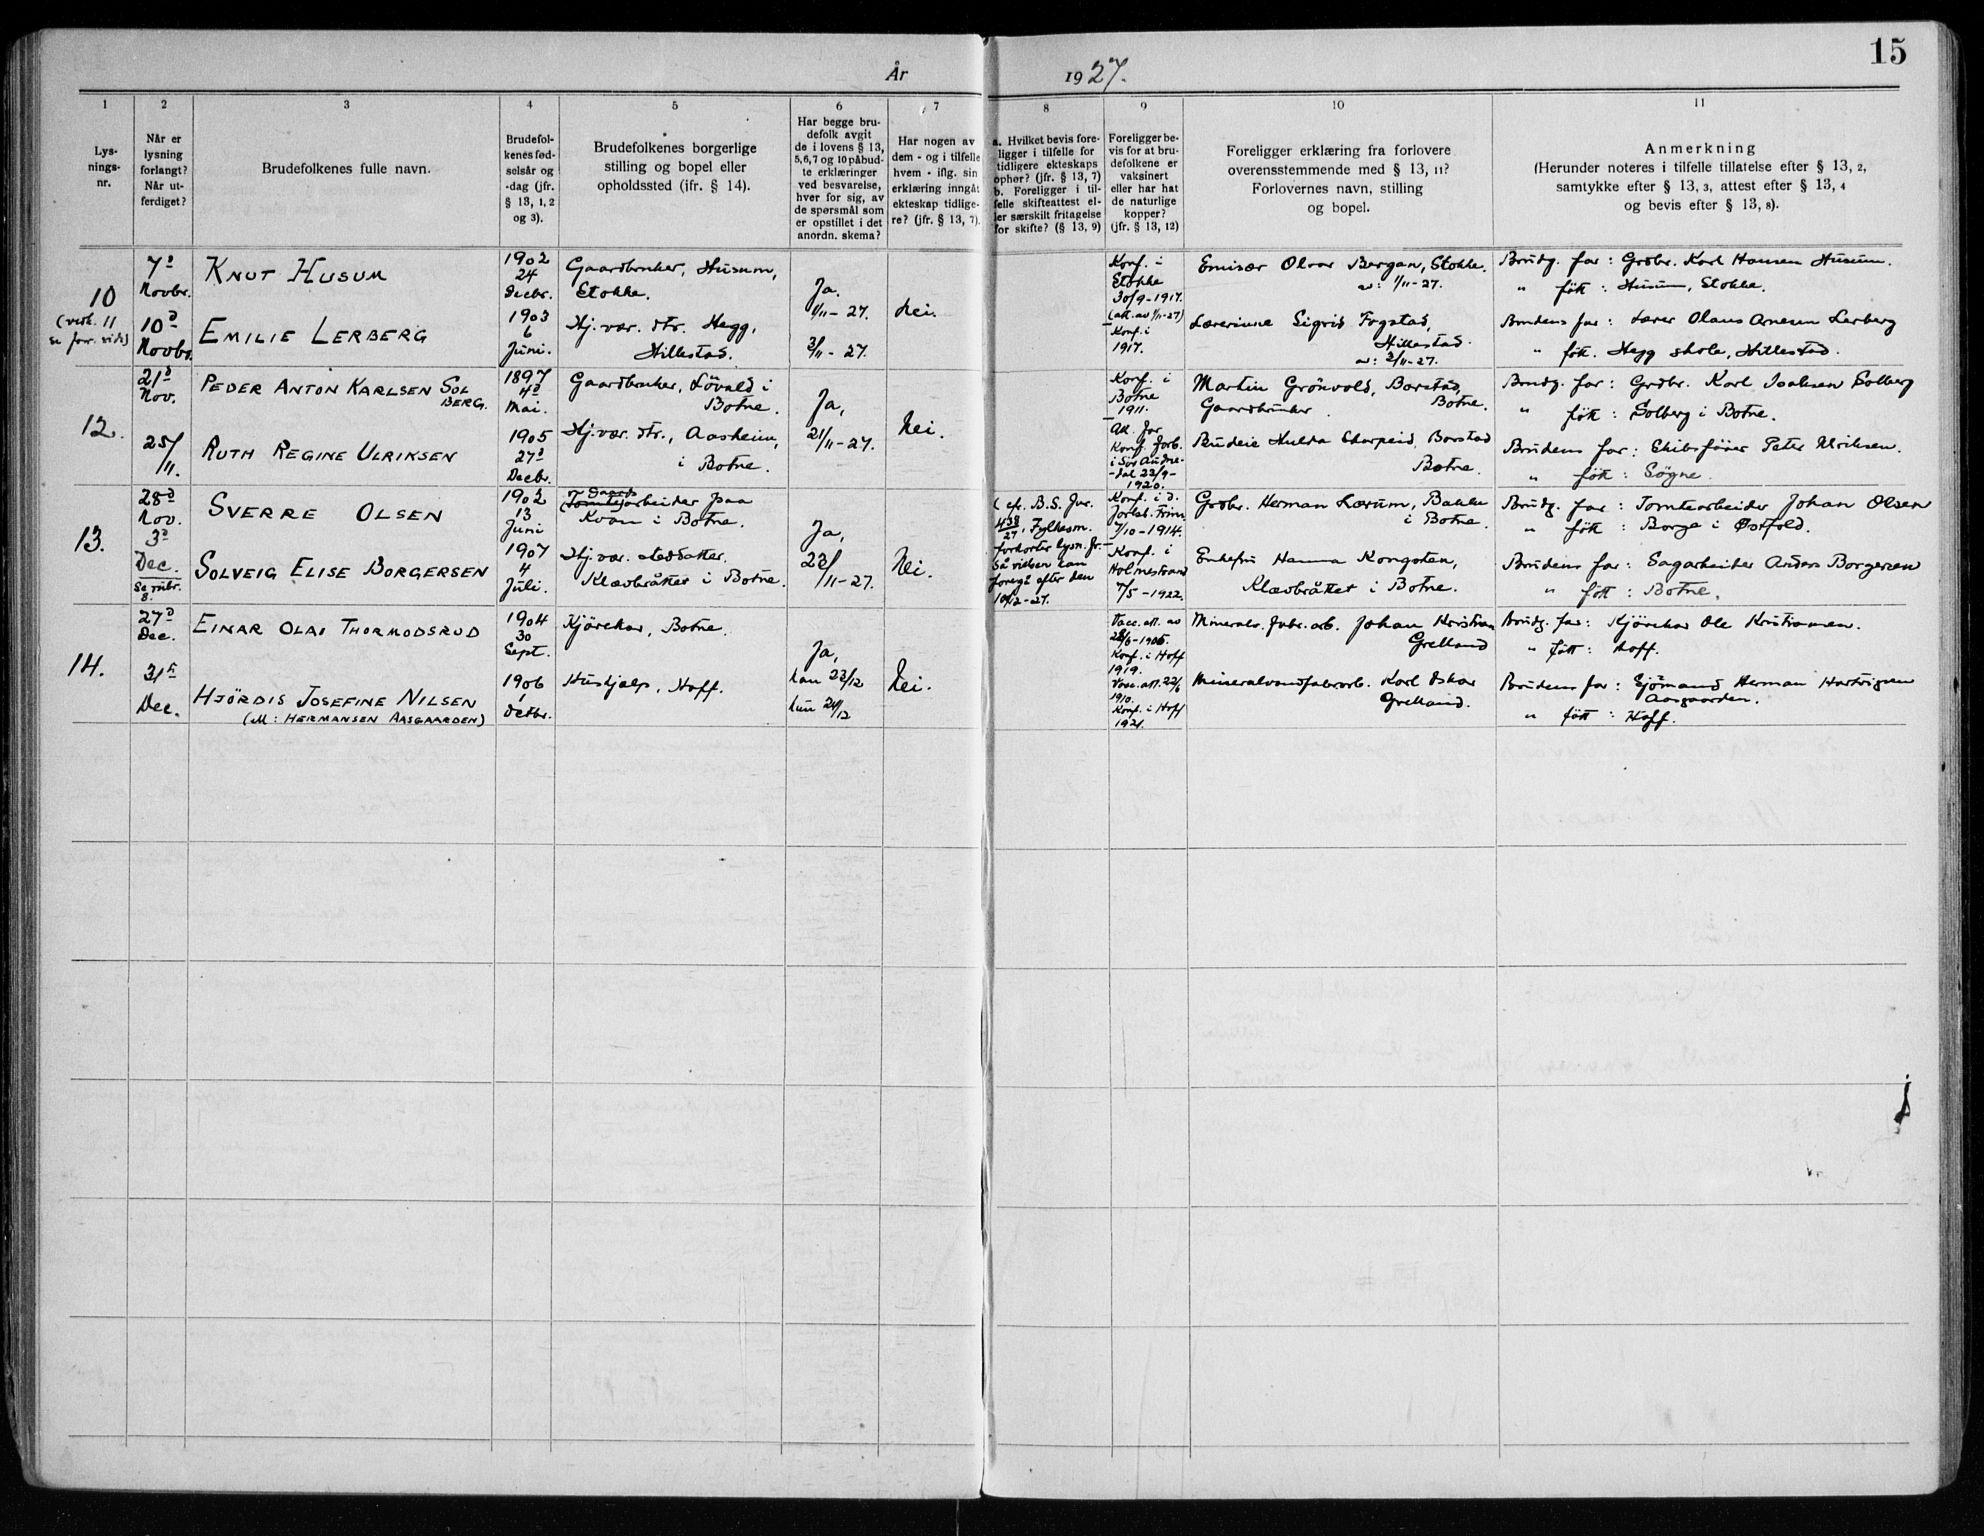 15
År 1927.
1 2 3 4 5 6 7 8 9 10 11
Lys-
nings-
nr.
Når er
lysning
forlangt?
Når ut-
ferdiget?
Brudefolkenes fulle navn.
Brudefol-
kenes fød-
selsår og
-dag (jfr.
§ 13, 1, 2
og 3).
Brudefolkenes borgerlige
stilling og bopel eller
opholdssted (ifr. § 14).
Har begge bru-
defolk avgit
de i lovens § 13,
5, 6, 7 og 10 påbud-
te erklæringer
ved besvarelse,
hver for sig, av
de spørsmål som
er opstillet i det
anordn. skema?
Har nogen av
dem - og i tilfelle
hvem - iflg. sin
erklæring inngått
ekteskap tidlige-
re? (jfr. § 13, 7).
a. Hvilket bevis fore-
ligger i tilfelle for
tidligere ekteskaps
ophør? (jfr. § 13, 7)
b. Foreligger i til-
felle skifteattest el-
ler særskilt fritagelse
for skifte? (§ 13, 9)
Foreligger be-
vis for at bru-
defolkene er
vaksinert
eller har hat
de naturlige
kopper?
(jfr. § 13, 12)
Foreligger erklæring fra forlovere
overensstemmende med § 13, 11?
Forlovernes navn, stilling
og bopel.
Anmerkning
(Herunder noteres i tilfelle tillatelse efter § 13, 2,
samtykke efter § 13, 3, attest efter § 13, 4
og bevis efter § 13, 8).
10
7d
Novbr.
10d
Novbr.
KNUT HUSUM
1902
24
Decbr.
Gaardbruker, Husum,
Stokke.
Ja.
1/11-27.
Nei.
Konf. i
Stokke
30/9-1917.
(att. av 1/11-27)
Emisær Olvar Bergan, Stokke.
av: 1/11-27.
Brudg. far: Grdbr. Karl Hansen Husum.
" fött: Husum, Stokke.
EMILIE LERBERG
1903
6
Juni.
Hj.vær. dtr. Hegg,
Hillestad.
2/11-27.
Konf. i
1917.
Lærerinne Sigrid Fogstad,
Hillestad.
av: 2/11-27.
Brudens far: Lærer Olaus Arnesen Lerberg
" fött. Hegg skole, Hillestad.
12.
21d
Nov.
25/11.
PEDER ANTON KARLSEN SOL
BERG.
1897
4d
Mai.
Gaardbruker, Lövald i
Botne.
Ja,
21/11-27.
Nei.
Konf. i
Botne
1911.
Martin Grönvold, Borstad,
Gaardbruker. Botne.
Brudg. far: Grdbr. Karl Isaksen Solberg
" fött: Solberg i Botne.
RUTH REGINE ULRIKSEN
1905
27d
Decbr.
Hj.vær. dtr., Aasheim,
i Botne.
Att. for
Konf. forb.
i Sör Audne-
dal 23/9-
1920.
Budeie Hulda Skarpeid, Borstad
Botne.
Brudens far: Skibsförer Peter Ulriksen.
" fött: Søgne.
13.
28d
Nov.
3d
Dec.
8.
SVERRE OLSEN
1902
13
Juni
Gaards
(Tomte)arbeider paa
Kvan i Botne.
Ja,
22/11-27.
Nei.
(cf. B.S. Jnr.
438/27, Fylkesm.
forkorter lysn. fr.
så vielsen kan
foregå efter den
10/12-27.
Konf. i d.
forlab. Frim
7/10-1914.
Grdbr. Herman Lærum, Bakke
i Botne.
Brudg. far: Tomtearbeider Johan Olsen
" fött: Borge i Østfold.
SOLVEIG ELISE BORGERSEN
1907
4
Juli.
Hj.vær. stedsatter.
Klævbråttet i Botne.
Konf. i
Holmestrand
7/5-1922.
Enkefru Hanna Kongsten,
Klævbråttet i Botne.
Brudens far: Sagarbeider Anders Borgersen
" fött: Botne.
14.
27d
Dec.
31te
Dec.
EINAR OLAI THORMODSRUD
1904
30
Sept.
Kjörekar, Botne.
Ja,
han 22/12
hun 24/12
Nei.
Vacc. att. av
Konf. i Hoff
1919.
Mineralv. fabr. arb. Johan Kristian
Grelland
Brudg. far: Kjörekar Ole Kristiansen.
" fött: Hoff.
HJÖRDIS JOSEFINE NILSEN
(ell: HERMANSEN AASGAARDEN)
1906
1
Octbr.
Hushjælp, Hoff.
Vacc. att. 22/6
1910.
Konf. i Hoff
1921.
Mineralvandfabrarb. Karl Oskar
Grelland.
Brudens far: Sjömand Herman Hartvigsen
Aasgaarden.
" fött: Hoff.